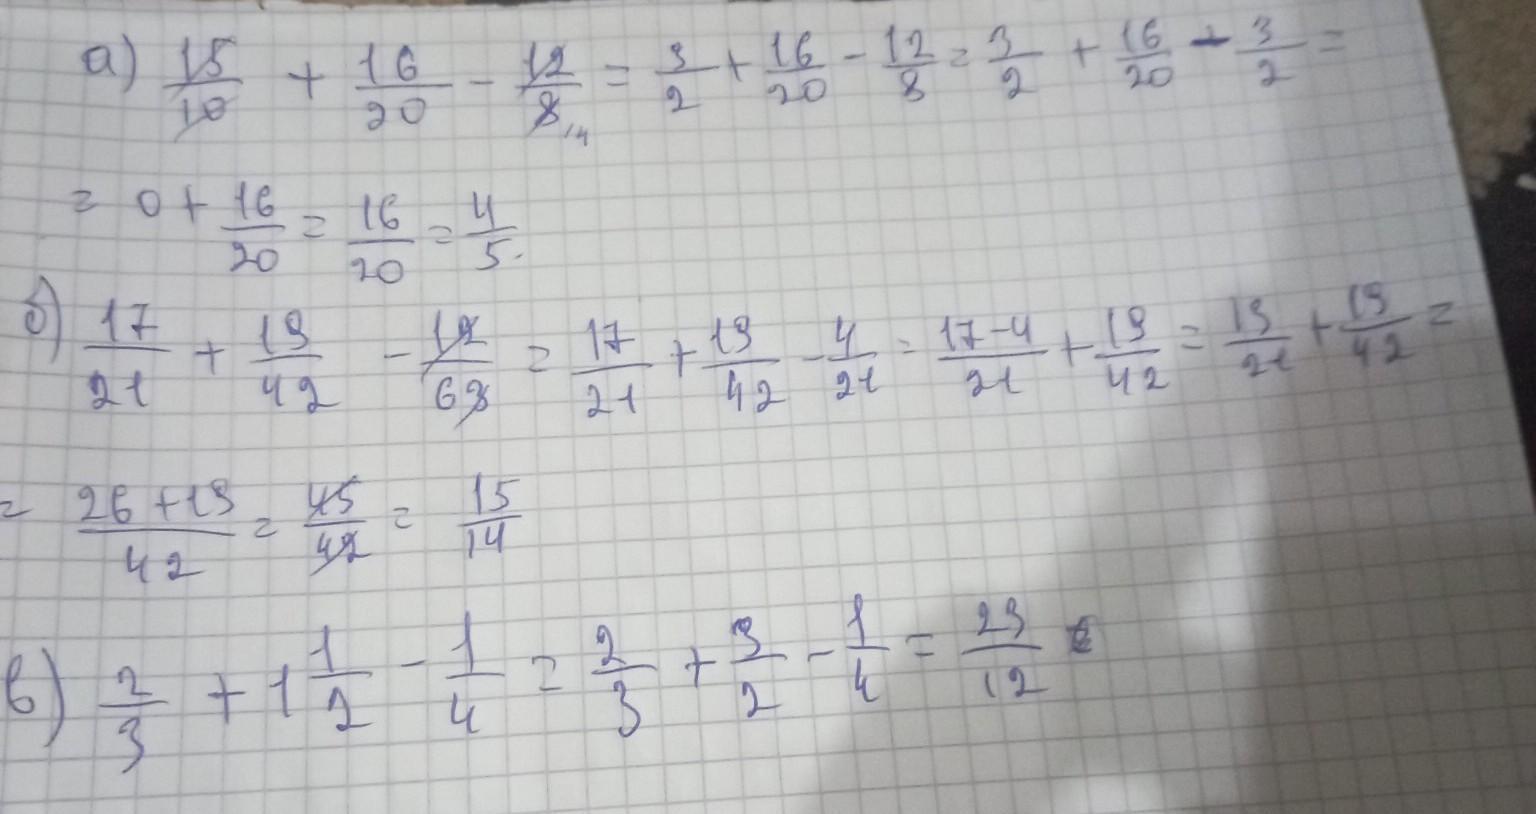 а) 15/10 + 16/20 - 12/8 = 3/2 + 16/20 - 12/8 = 3/2 + 16/20 - 3/2 =
= 0 + 16/20 = 16/20 = 4/5.
б) 17/21 + 19/42 - 12/63 = 17/21 + 19/42 - 4/21 = 17-4/21 + 19/42 = 13/21 + 19/42 =
= 26+19/42 = 45/42 = 15/14
в) 2/3 + 1 1/2 - 1/4 = 2/3 + 3/2 - 1/4 = 23/12